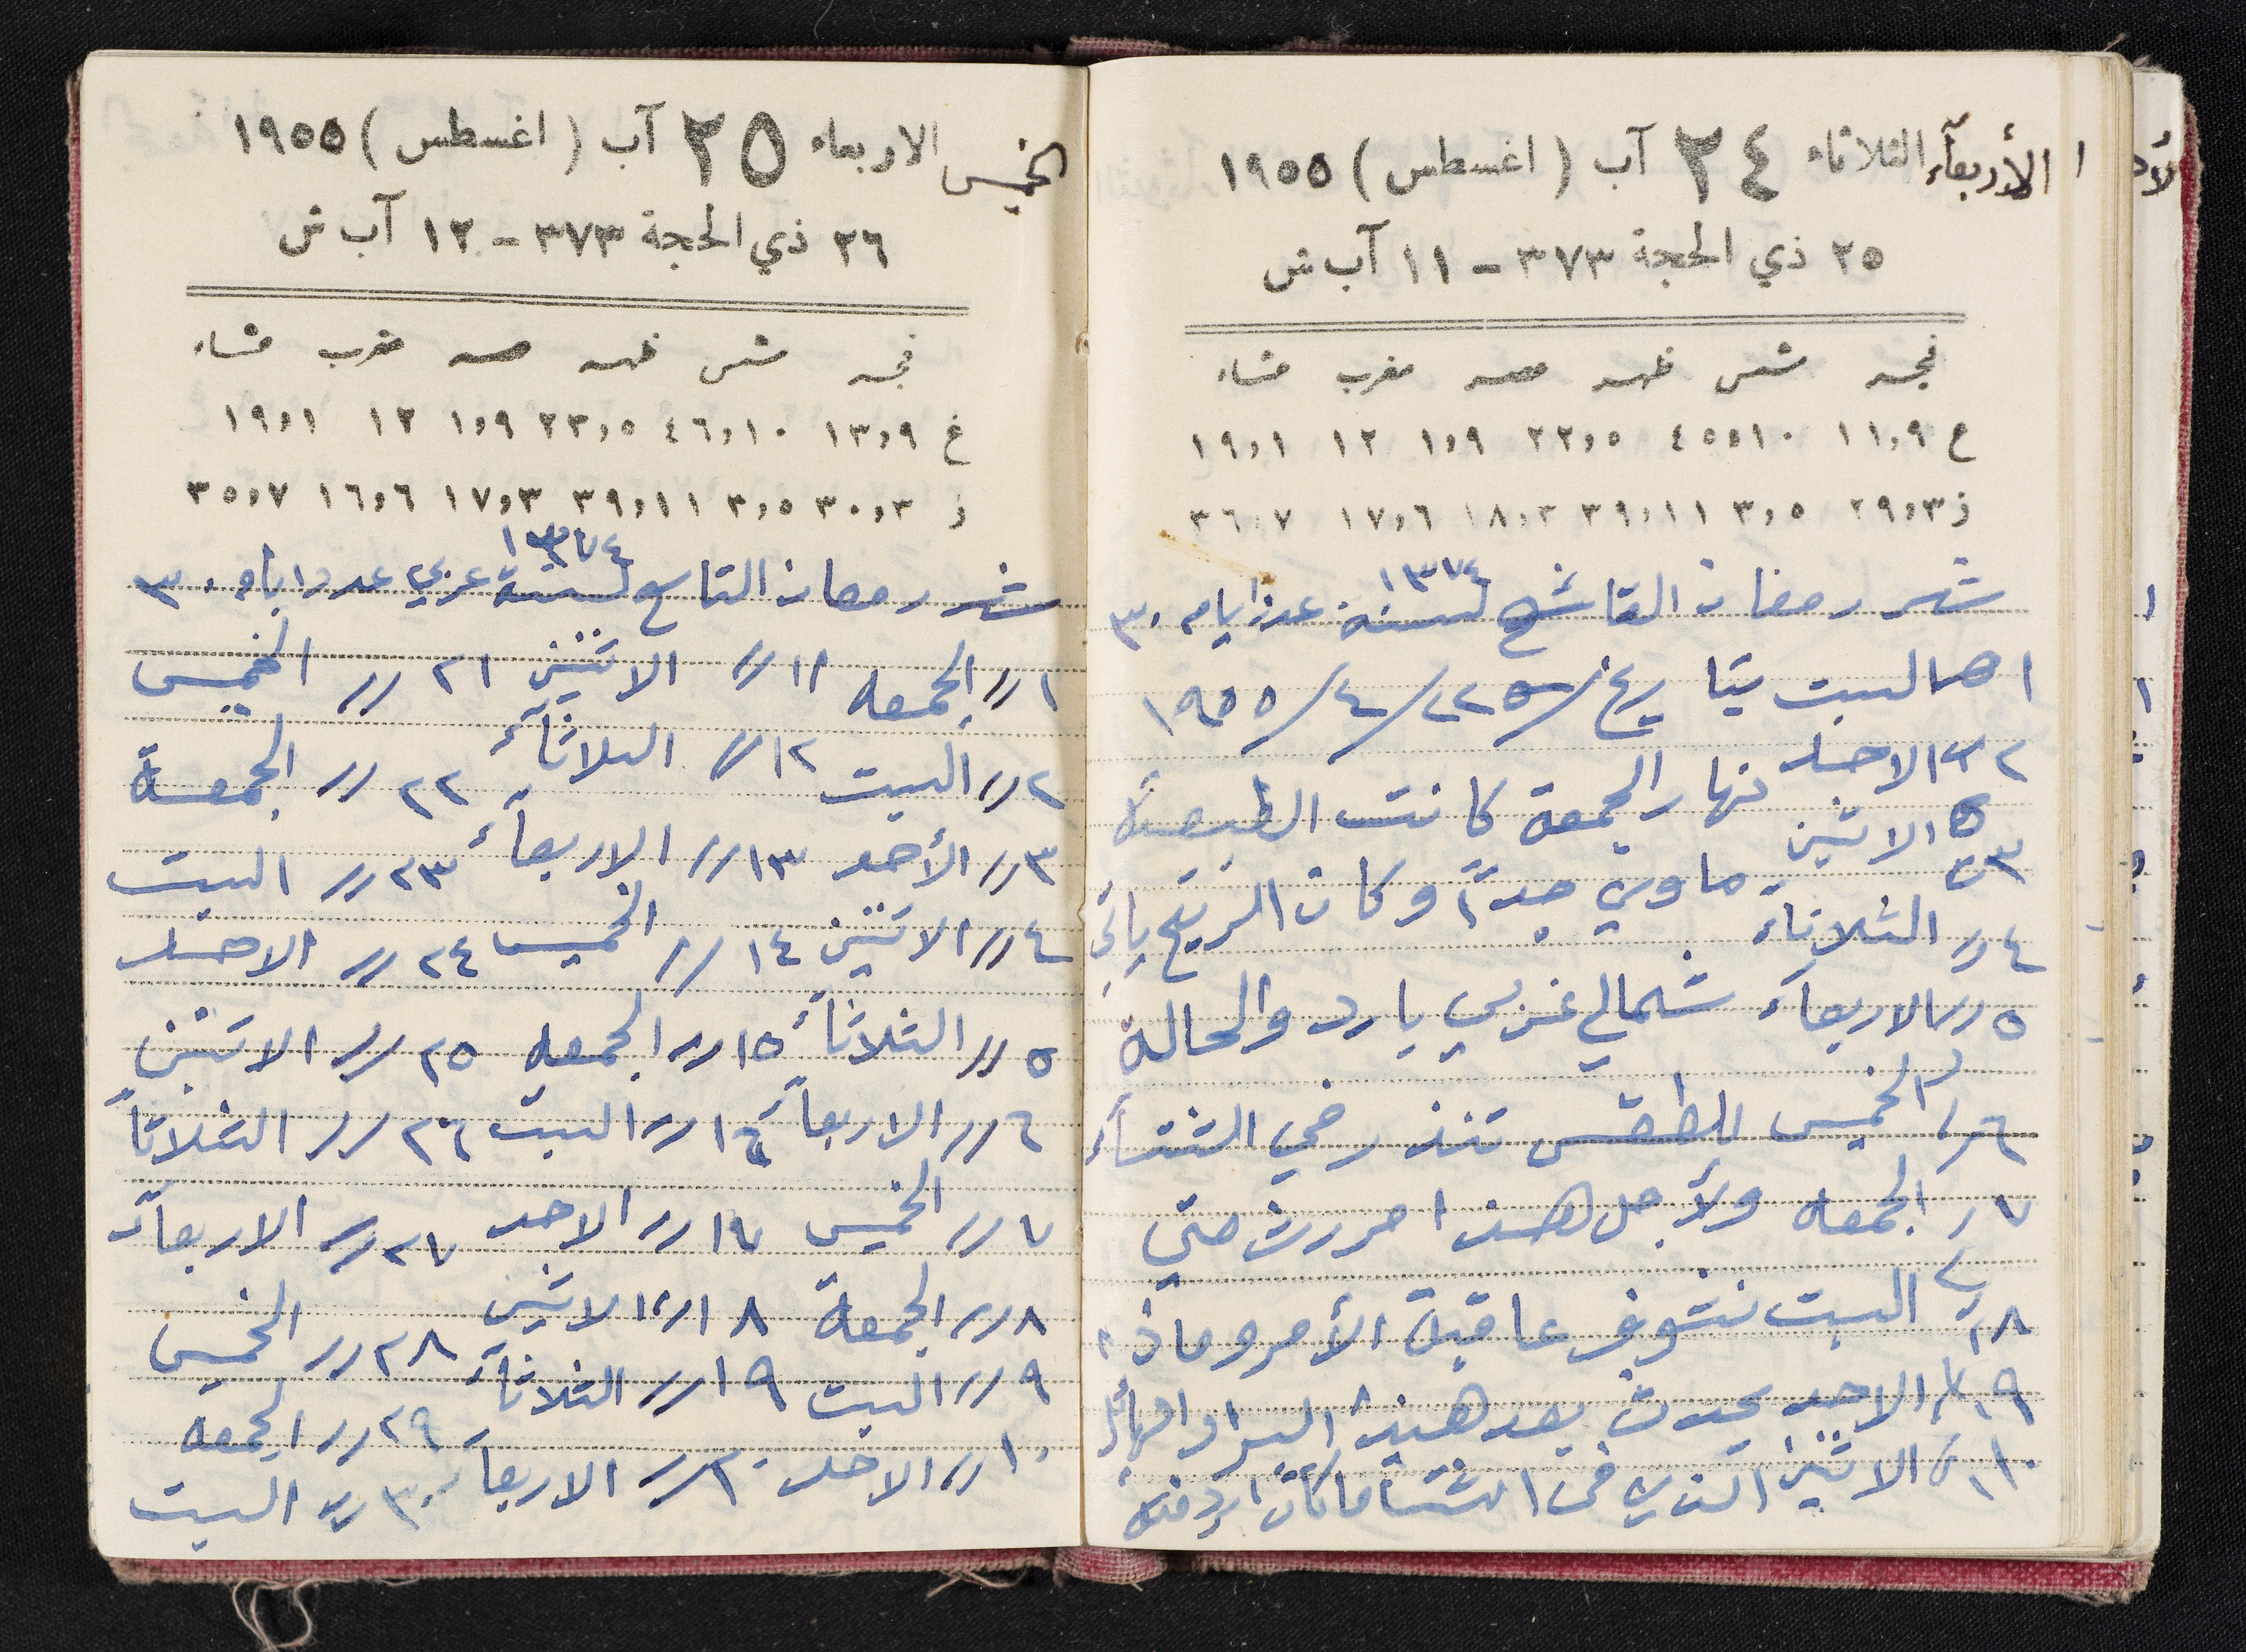 الأربعآء الثلاثاء ٢٤ آب ( اغسطس ) ١٩٥٥
٢٥ ذي الحجة ٣٧٣ - ١١ آب ش
فجر شمس ظهر عصر مغرب عشاء
ع ١١،٩ ٤٥،١٠ ٢٢،٥ ١،٩ ١٢ ١٩،١
ز ٢٩،٣ ٣،٥ ٣٩،١١ ١٨،٣ ١٧،٦ ٣٦،٧
شهر رمضان التاسع لسنة ١٣٧٤ عدد ايام ٣٠
١ السبت بتاريخ ٢٢/٤/١٩٥٥
٢ الاحد نهار الجمعة كانت الطبيعة
٣ الاثنين ماوي جداً وكان الريح يأتي
٤〃 الثلاثآء
٥〃 الاربعآء شمالي غربي بارد والحالة
٦〃 الخميس للطقس تنذر في الشتآء
٧〃 الجمعه ولأجل هذا حررت حتى
٨〃 السبت نشوف عاقبة الأمر وماذا
٩〃 الاحد يحدث بعد هذا البراد الهائل
١٠〃 الاثنين الذي في الشتا ما كان ابرد منه
الخميس الاربعاء ٢٥ آب ( اغسطس ) ١٩٥٥
٢٦ ذي الحجة ٣٧٣ - ١٢ آب ش
فجر شمس ظهر عصر مغرب عشاء
غ ١٣،٩ ٤٦،١٠ ٢٣،٥ ١،٩ ١٢ ١٩،١
ز ٣٠،٣ ٣،٥ ٣٩،١١ ١٧،٣ ١٦،٦ ٣٥،٧
شهر رمضان التاسع لسنة ١٣٧٤ عربي عدد ايام ٣٠
١〃 الجمعه ١١〃 الاثنين ٢١〃 الخميس
٢〃 السبت ١٢〃 الثلاثآء ٢٢〃 الجمعة
٣〃 الأحد ١٣〃 الاربعآء ٢٣〃 السبت
٤〃 الاثنين ١٤〃 الخميس ٢٤〃 الاحد
٥〃 الثلاثآء ١٥〃 الجمعه ٢٥〃 الاثنين
٦〃 الاربعآء ١٦〃 السبت ٢٦〃 الثلاثآ
٧〃 الخميس ١٧〃 الاحد ٢٧〃 الاربعآء
٨〃 الجمعة ١٨〃 الاثنين ٢٨〃 الخميس
٩〃 السبت ١٩〃 الثلاثآء ٢٩〃 الجمعه
١٠〃 الاحد ٢٠〃 الاربعآء ٣٠〃 السبت